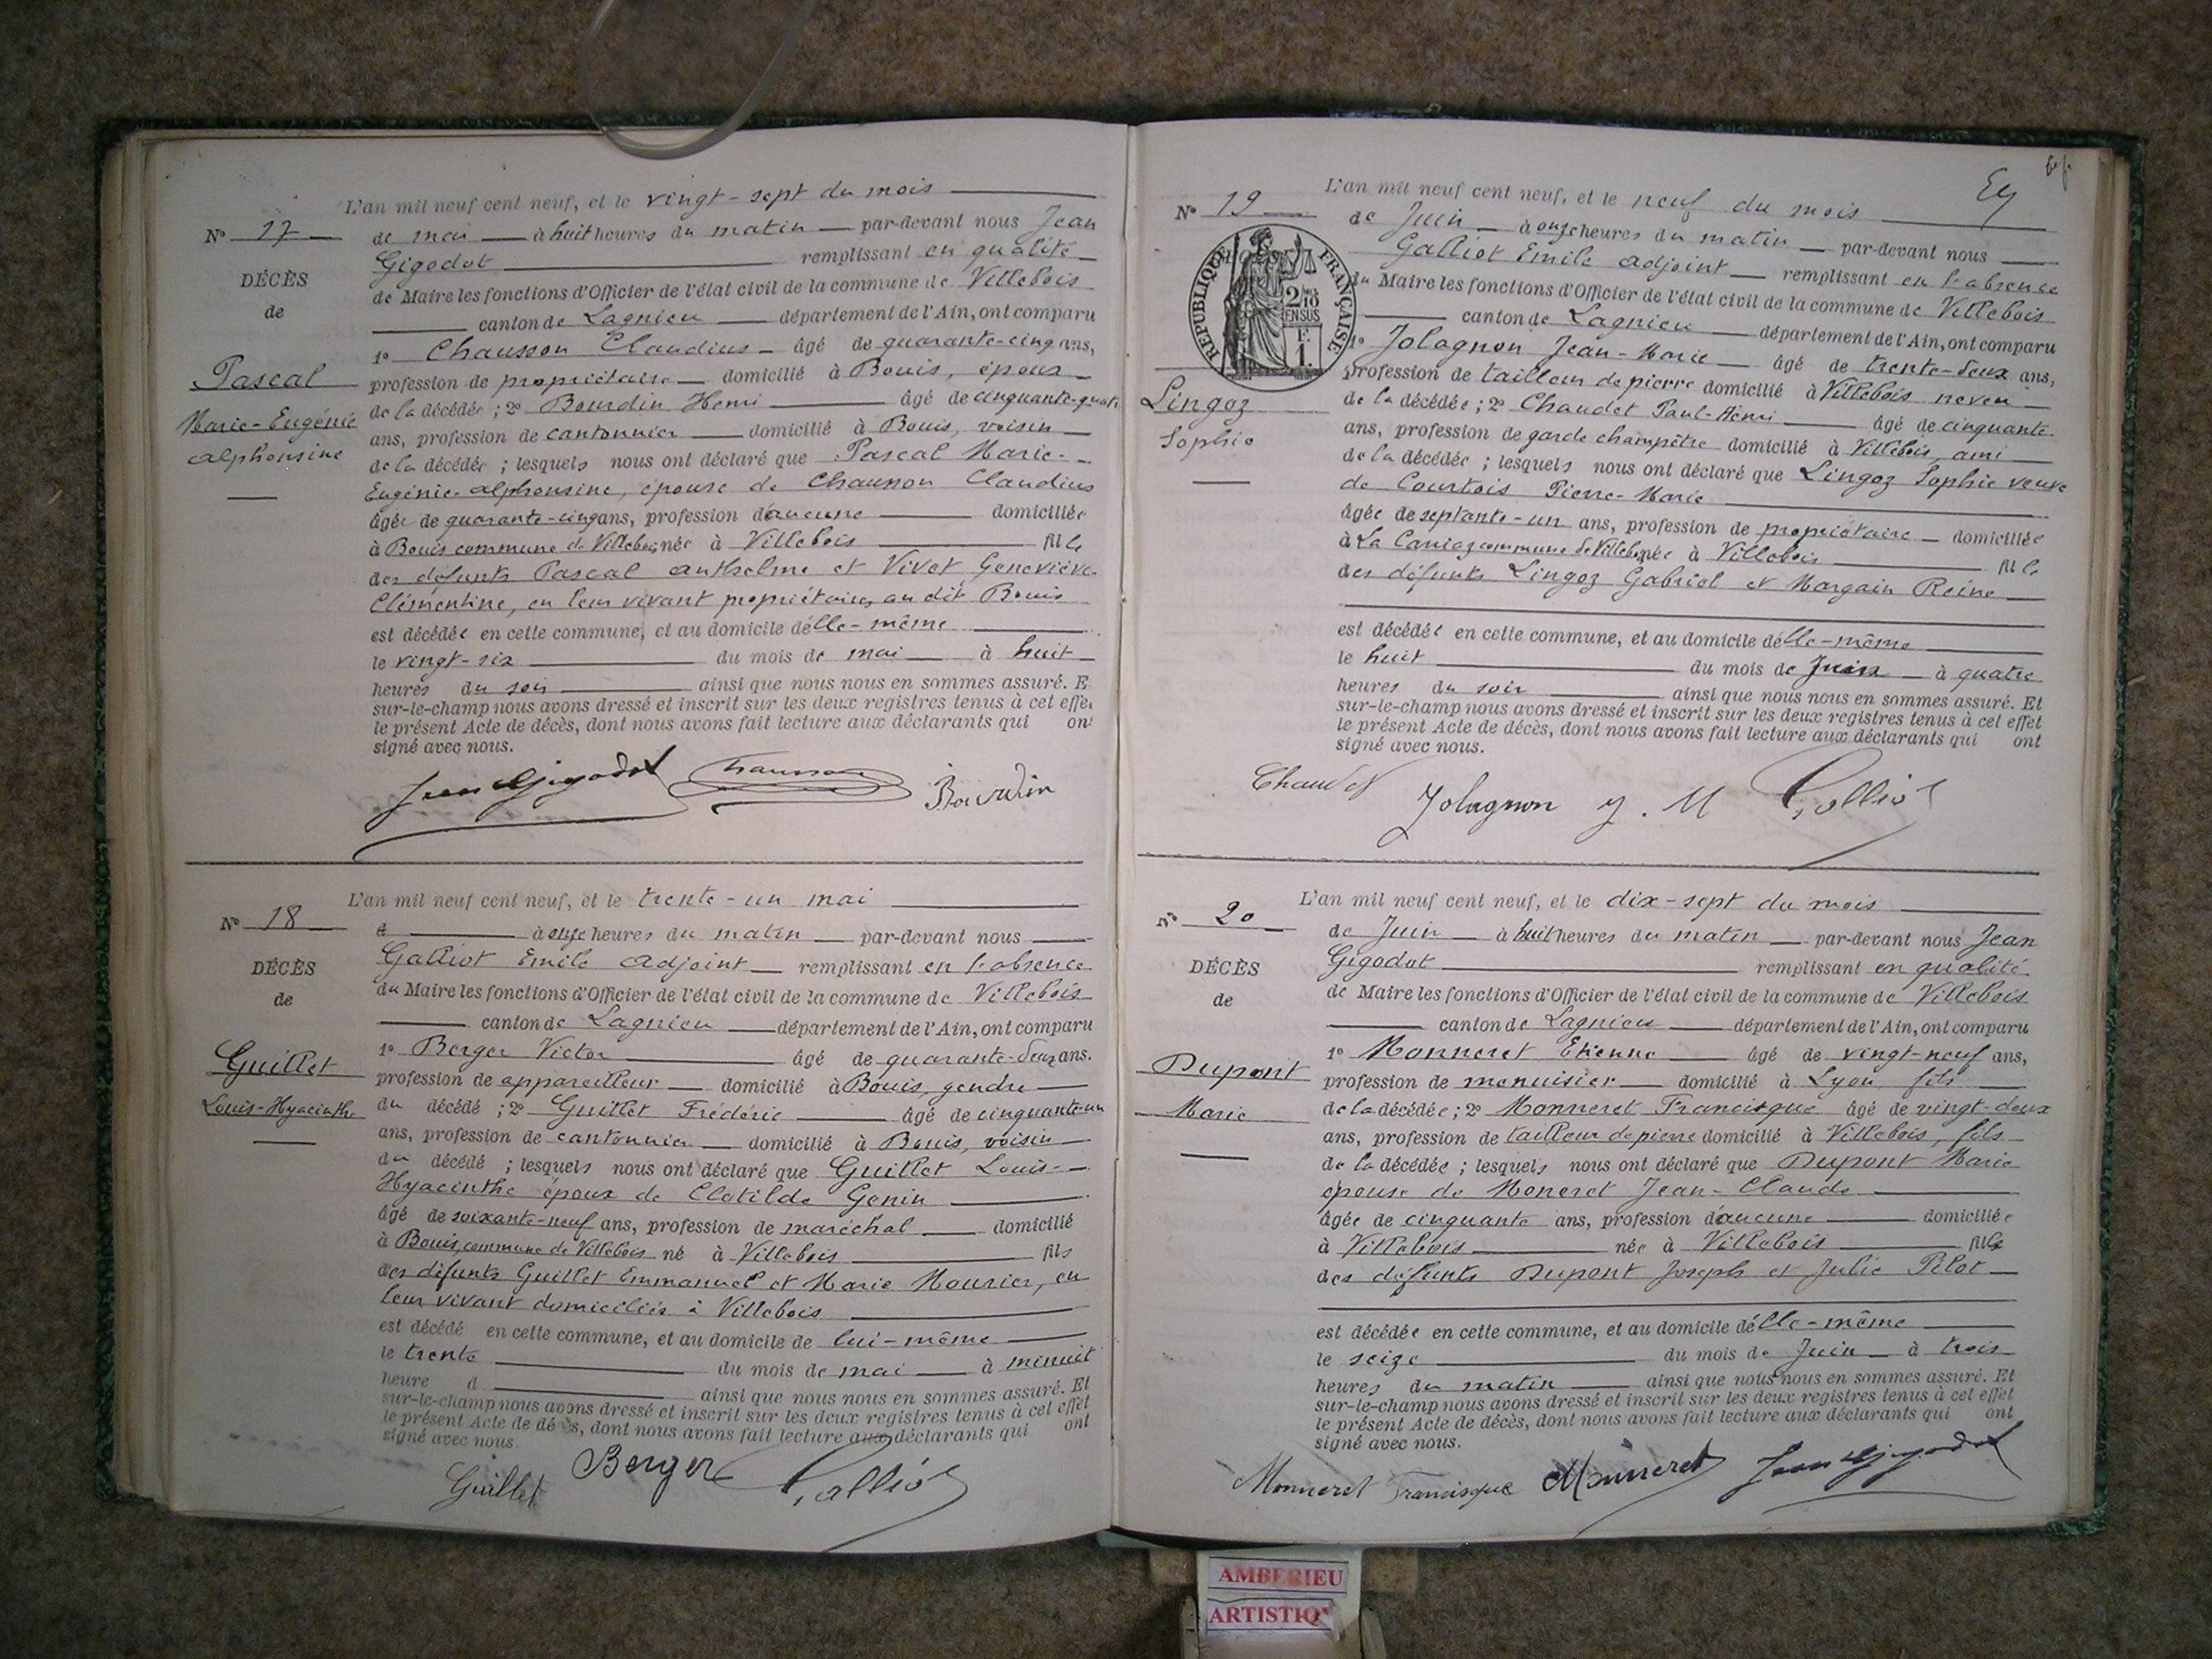 L'an mil neuf cent neuf, et le vingt-sept du mois
N° 17 de mai à huit heures du matin par-devant nous Jean
Gigodot remplissant en qualité
DÉCÈS
de Maire les fonctions d'Officier de l'état civil de la commune de Villebois
de
canton de Lagnieu département de l'Ain, ont comparu
1° Chausson Claudius âgé de quarante-cinq ans,
Pascal
profession de propriétaire domicilié à Bouis, époux
Marie-Eugénie
de la décédée ; 2° Bourdin Henri âgé de cinquante-quatre
ans, profession de cantonnier domicilié à Bouis, voisin
alphonsine
de la décédée ; lesquels nous ont déclaré que Pascal Marie-
Eugénie-alphonsine, épouse de Chausson Claudius
âgée de quarante-cinq ans, profession d'aucune domiciliée
à Bouis commune de Villebois née à Villebois fille
des défunts Pascal anthelme et Vivet Geneviève-
Clémentine, en leur vivant propriétaires au dit Bouis
est décédée en cette commune, et au domicile d'elle-même
le vingt-six du mois de mai à huit
heures du soir ainsi que nous nous en sommes assuré. E
sur-le-champ nous avons dressé et inscrit sur les deux registres tenus à cet effet
le présent Acte de décès, dont nous avons fait lecture aux déclarants qui ont
signé avec nous.
Jean Gigodot Chausson Bourdin
L'an mil neuf cent neuf, et le trente-un mai
N° 18
à onze heures du matin par-devant nous
Galliot Emile adjoint remplissant en l'absence
DÉCÈS
du Maire les fonctions d'Officier de l'état civil de la commune de Villebois
de
canton de Lagnieu département de l'Ain, ont comparu
1° Berger Victor âgé de quarante-deux ans.
Guillet
profession de appareilleur domicilié à Bouis, gendre
Louis-Hyacinthe
du décédé ; 2° Guillet Frédéric âgé de cinquante-un
ans, profession de cantonnier domicilié à Bouis, voisin
du décédé ; lesquels nous ont déclaré que Guillet Louis-
Hyacinthe époux de Clotilde Genin
âgé de soixante-neuf ans, profession de maréchal domicilié
à Bouis, commune de Villebois né à Villebois fils
des défunts Guillet Emmanuel et Marie Mourier, en
leur vivant domiciliés à Villebois
est décédé en cette commune, et au domicile de lui-même
le trente du mois de mai à minuit
heure d ainsi que nous nous en sommes assuré. Et
sur-le-champ nous avons dressé et inscrit sur les deux registres tenus à cet effet
le présent Acte de décès, dont nous avons fait lecture aux déclarants qui ont
signé avec nous.
Guillet Berger Galliot
L'an mil neuf cent neuf, et le neuf du mois
N° 19
de Juin à onze heures du matin par-devant nous
Galliot Emile adjoint remplissant en l'absence
RÉPUBLIQUE FRANÇAISE
2/10 EN SUS
F. 1.
du Maire les fonctions d'Officier de l'état civil de la commune de Villebois
canton de Lagnieu département de l'Ain, ont comparu
1° Jolagnon Jean-Marie âgé de trente-deux ans,
profession de tailleur de pierre domicilié à Villebois neveu
Lingoz
de la décédée ; 2° Chaudet Paul-Henri âgé de cinquante-
Sophie
ans, profession de garde champêtre domicilié à Villebois, ami
de la décédée ; lesquels nous ont déclaré que Lingoz Sophie veuve
de Courtois Pierre-Marie
âgée de septante-un ans, profession de propriétaire domiciliée
à commune de Villebois née à Villebois fille
des défunts Lingoz Gabriel et Margain Reine
est décédée en cette commune, et au domicile d'elle-même
le huit du mois de Juin à quatre
heures du soir ainsi que nous nous en sommes assuré. Et
sur-le-champ nous avons dressé et inscrit sur les deux registres tenus à cet effet
le présent Acte de décès, dont nous avons fait lecture aux déclarants qui ont
signé avec nous.
Chaudet Jolagnon J. M Galliot
L'an mil neuf cent neuf, et le dix-sept du mois
N° 20
de Juin à huit heures du matin par-devant nous Jean
Gigodot remplissant en qualité
DÉCÈS
de Maire les fonctions d'Officier de l'état civil de la commune de Villebois
de
canton de Lagnieu département de l'Ain, ont comparu
1° Monneret Etienne âgé de vingt-neuf ans,
Dupont
profession de menuisier domicilié à Lyon, fils
Marie
de la décédée ; 2° Monneret Francisque âgé de vingt-deux
ans, profession de tailleur de pierre domicilié à Villebois, fils
de la décédée ; lesquels nous ont déclaré que Dupont Marie
épouse de Moneret Jean-Claude
âgée de cinquante ans, profession d'aucune domiciliée
à Villebois née à Villebois fille
des défunts Dupont Joseph et Julie Pelot
est décédée en cette commune, et au domicile d'elle-même
le seize du mois de Juin à trois
heures du matin ainsi que nous nous en sommes assuré. Et
sur-le-champ nous avons dressé et inscrit sur les deux registres tenus à cet effet
le présent Acte de décès, dont nous avons fait lecture aux déclarants qui ont
signé avec nous.
Monneret Francisque Monneret Jean Gigodot
AMBERIEU
ARTISTIQ